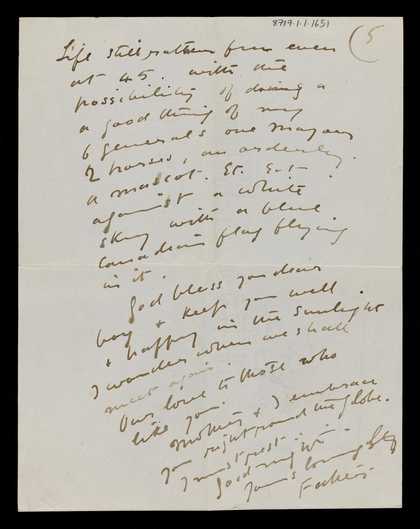 8717.1.1.1651
(5
Life still rather fun even
at 45. with the
possibility of doing a
a good thing of my
6 generals one Mayor
2 horses, an orderly.
a mascot. Etc. Etc
against a white
sky with a blue
Canadian flag flying
in it.
God bless you dear
boy & keep you well
& happy in the sunlight.
I wonder when we shall
meet again.
Our love to those who
like you.
Mother & I embrace
you right round the globe.
I must rest
Good night
Yours lovingly
Father